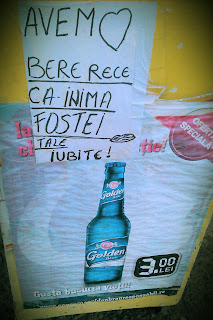 AVEM ♡
BERE RECE
CA INIMA
FOSTEI
TALE
IUBITE!
la
OFERTA
SPECIALA
Golden
3.00
LEI
Gustă bucuria vieții!